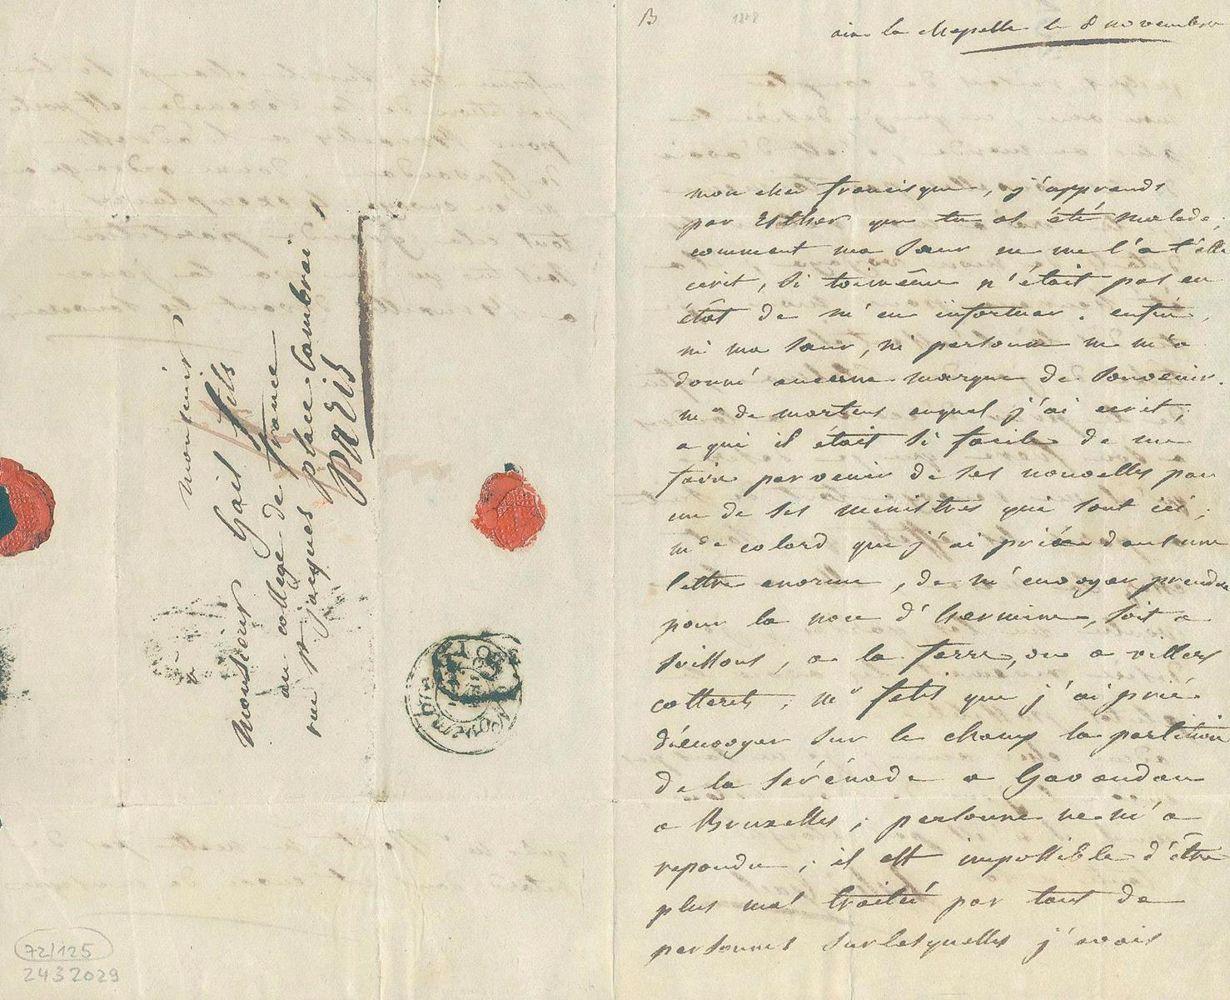 B 1818
aix la chapelle le 8 novembre
mon cher francisque, j'apprends
par Esther que tu as été malade,
comment ma soeur ne me l'a t'elle
ecrit, si toi même n'était pas en
état de m'en informer. enfin,
ni ma soeur, ni personne ne m'a
donné aucune marque de souvenir.
mr de martens auquel j'ai ecrit,
a qui il était si facile de me
faire parvenir de ses nouvelles par
un de ses ministres qui sont ici;
mde colard que j'ai priée dans une
lettre enorme, de m'envoyer prendre
pour la noce d'hermine, soit a
soissons, a la ferre, ou a villers
cotterets; mr fetis que j'ai prié
d'envoyer sur le champ la partition
de la sérénade a Gavaudan
a Bruxelles; personne ne m'a
repondu; il est impossible d'être
plus mal traitée par tant de
personnes surlesquelles j'avais
monsieur,
Monsieur Gail fils
au college de france
rue st jacques place Cambrai,
paris
72/125
2432029